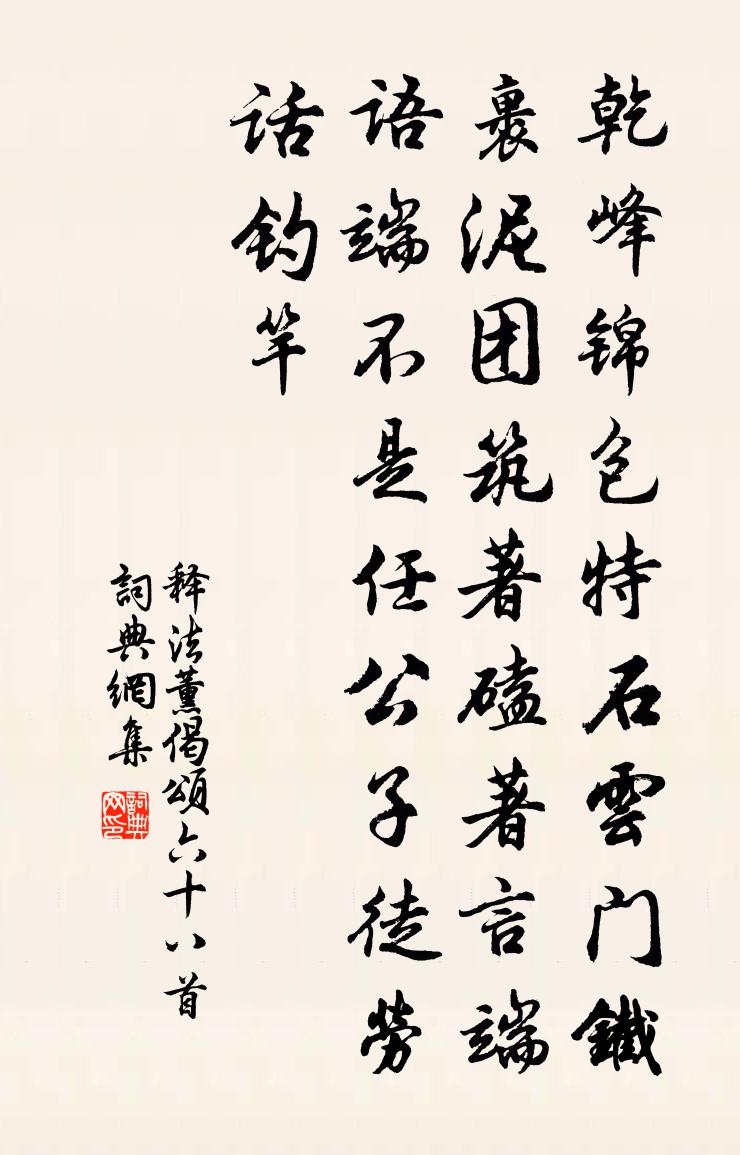 乾峰锦包特石雲门鐵
裹泥团筑著磕著言端
語端不是任公子徒劳
话钓竿
释法薰偈頌六十八首
詞典網集
詞典网印